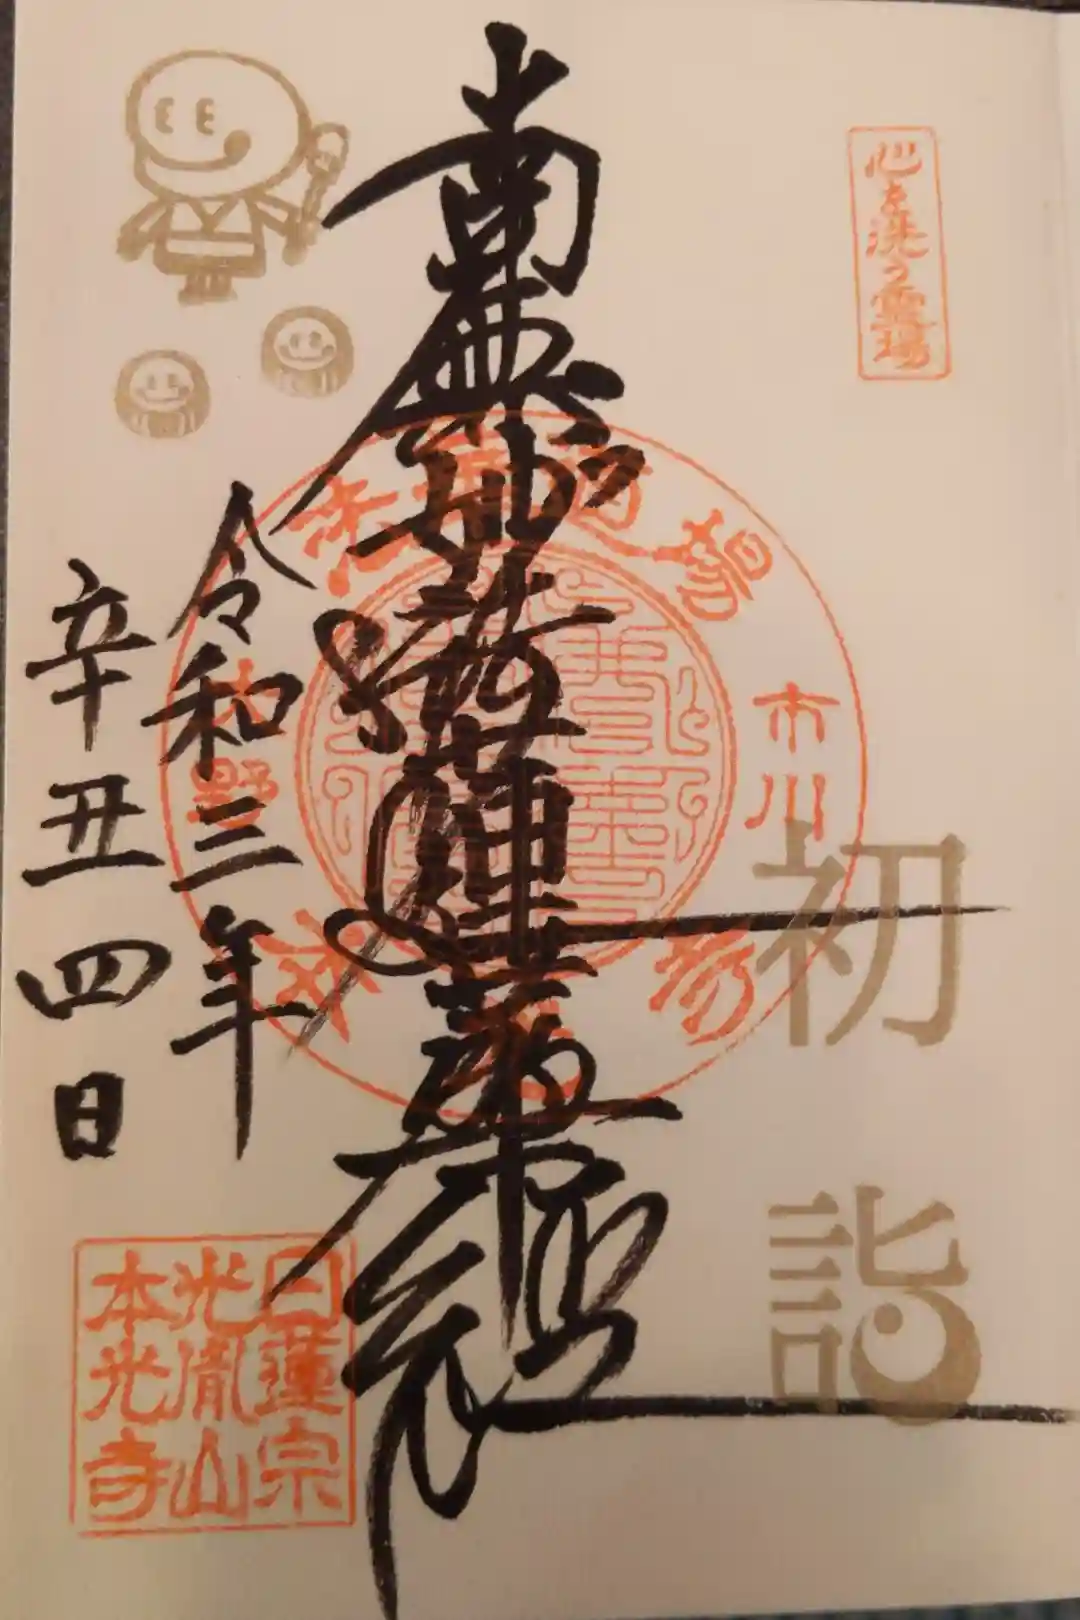 心を洗う霊場
初詣
南無妙法蓮華経
市川
令和三年
辛丑四日
日蓮宗
光胤山
本光寺